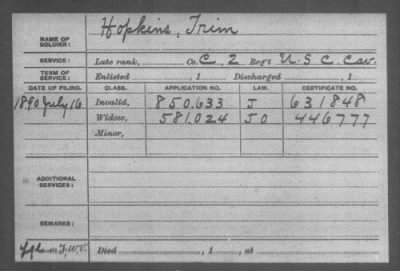 NAME OF SOLDIER: Hopkins, Trim
SERVICE: Late rank, Co. C, 2 Reg't U.S.C. Cav.
TERM OF SERVICE: Enlisted , 1 Discharged , 1
DATE OF FILING. CLASS. APPLICATION NO. LAW. CERTIFICATE NO.
1890 July 16 Invalid, 850.633 J 631848
Widow, 581.024 J O 446777
Minor,
ADDITIONAL SERVICES:
REMARKS:
Died , 1 , at